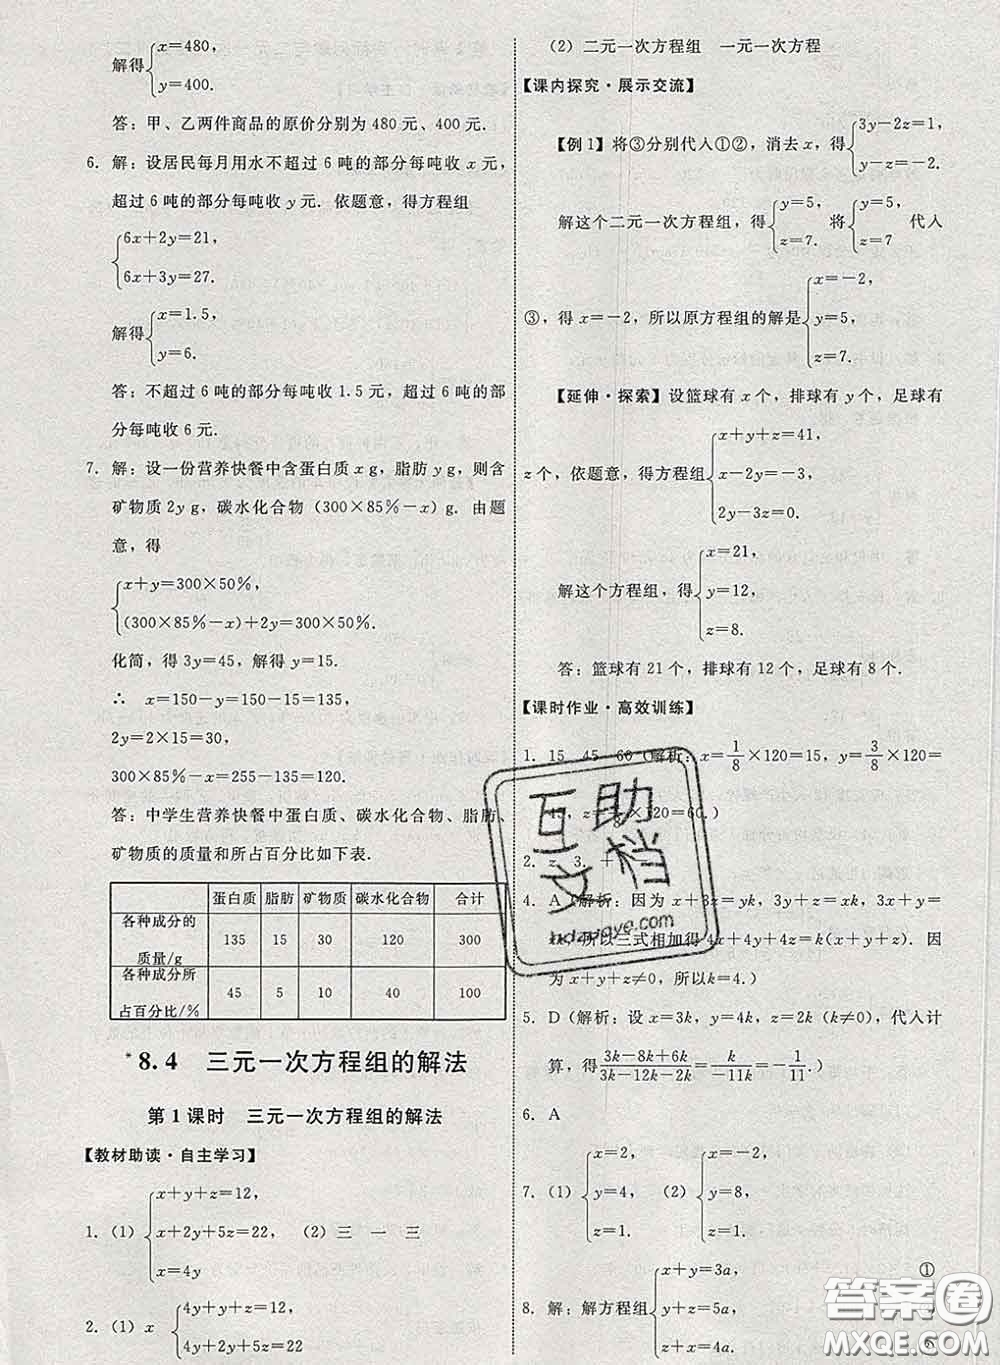 解得{x=480,
y=400.
答：甲、乙两件商品的原价分别为 480 元、400 元.
6. 解：设居民每月用水不超过 6 吨的部分每吨收 x 元，
超过 6 吨的部分每吨收 y 元. 依题意，得方程组
{6x+2y=21,
6x+3y=27.
解得{x=1.5,
y=6.
答：不超过 6 吨的部分每吨收 1.5 元，超过 6 吨的部
分每吨收 6 元.
7. 解：设一份营养快餐中含蛋白质 x g，脂肪 y g，则含
矿物质 2y g，碳水化合物（300×85%－x）g. 由题
意，得
{x+y=300×50%,
(300×85%－x)+2y=300×50%.
化简，得 3y=45，解得 y=15.
∴ x=150－y=150－15=135,
2y=2×15=30,
300×85%－x=255－135=120.
答：中学生营养快餐中蛋白质、碳水化合物、脂肪、
矿物质的质量和所占百分比如下表.
蛋白质 脂肪 矿物质 碳水化合物 合计
各种成分的质量/g 135 15 30 120 300
各种成分所占百分比/% 45 5 10 40 100
*8.4 三元一次方程组的解法
第 1 课时 三元一次方程组的解法
【教材助读·自主学习】
1.（1）{x+y+z=12,
x+2y+5z=22,
x=4y
（2）三 一 三
2.（1）x {4y+y+z=12,
4y+2y+5z=22
（2）二元一次方程组 一元一次方程
【课内探究·展示交流】
【例 1】将③分别代人①②，消去 x，得{3y－2z=1,
y－z=－2.
解这个二元一次方程组，得{y=5,
z=7.
将{y=5,
z=7
代人
③，得 x=－2，所以原方程组的解是{x=－2,
y=5,
z=7.
【延伸·探索】设篮球有 x 个，排球有 y 个，足球有
z 个，依题意，得方程组{x+y+z=41,
x－2y=－3,
2y－3z=0.
解这个方程组，得{x=21,
y=12,
z=8.
答：篮球有 21 个，排球有 12 个，足球有 8 个.
【课时作业·高效训练】
1. 15 45 60（解析：x=1/8×120=15，y=3/8×120=
×120=60.）
2. z 3.
4. A（解析：因为 x+3z=yk，3y+z=xk，3x+y=
zk，所以三式相加得 4x+4y+4z=k(x+y+z). 因
为 x+y+z≠0，所以 k=4.）
5. D（解析：设 x=3k，y=4k，z=2k（k≠0），代入计
算，得(3k－8k+6k)/(3k－12k－2k)=k/(－11k)=－1/11.）
6. A
7.（1）{x=2,
y=4,
z=1.
（2）{x=2,
y=8,
z=1.
8. 解：解方程组{x+y=3a, ①
y+z=5a,
z+x=4a.
互助文档
hdzuoye.com
答案圈
MXQE.COM